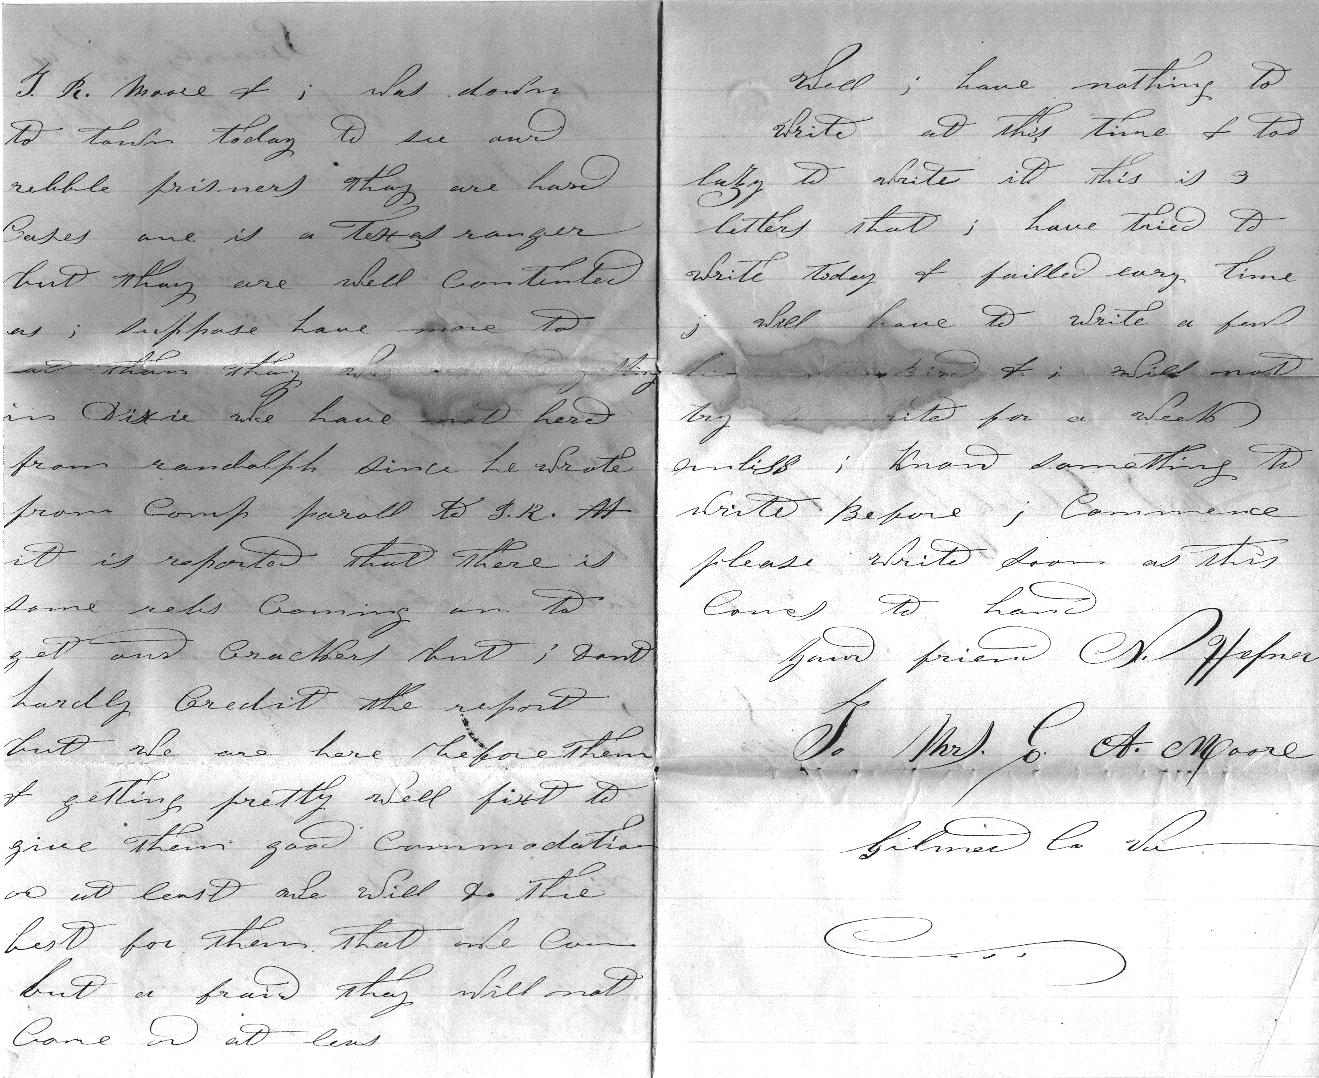 T. R. Moore & i was down
to town today to see our
rebble prisners thay are hard
Cases one is a texas ranger
but thay are well Contented
as i suppose have more to
at than thay
in Dixie we have not herd
from randolph since he wrote
from Comp paroll to T. R. M
it is reported that there is
some rebs Coming on to
get our Crackers but i dont
hardly Credit the report
but we are here before them
& getting pretty well fixt to
give them good Commodation
or at least we will do the
best for them that we Can
but a fraid thay will not
Come or at leas
Well i have nothing to
write at this time & too
lazy to write it this is 3
letters that i have tried to
write today & failled evry time
i will have to write a few
& i will not
try for a week
unliss i Know something to
write Before i Commence
please write soon as this
Comes to hand
your friend N. Hefner
To Mrs. E. A. Moore
Gilmer Co Va